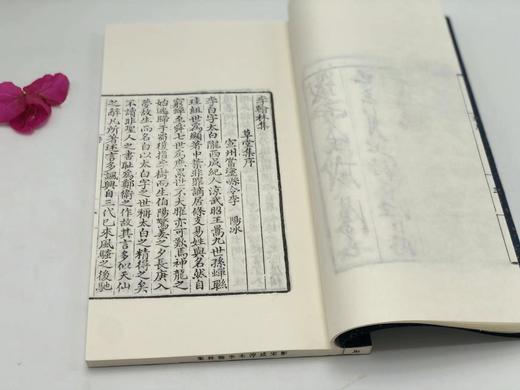 李翰林集
草堂集序
宣州當塗縣令李 陽冰
李白字太白隴西成紀人涼武昭王暠九世孫蟬聯
珪組世為顯著中葉非罪謫居條支易姓與名然自
窮蟬至舜七世為庶累世不大曜亦可歎焉神龍之
始逃歸于蜀復指李樹而生伯陽驚姜之夕長庚入
夢故生而名白以太白字之世稱太白之精得之矣
不讀非聖人之書恥為鄭衛之作故其言多似天仙
之辭凡所著述言多諷興自三代已來風騷之後馳
影宋咸淳本李翰林集